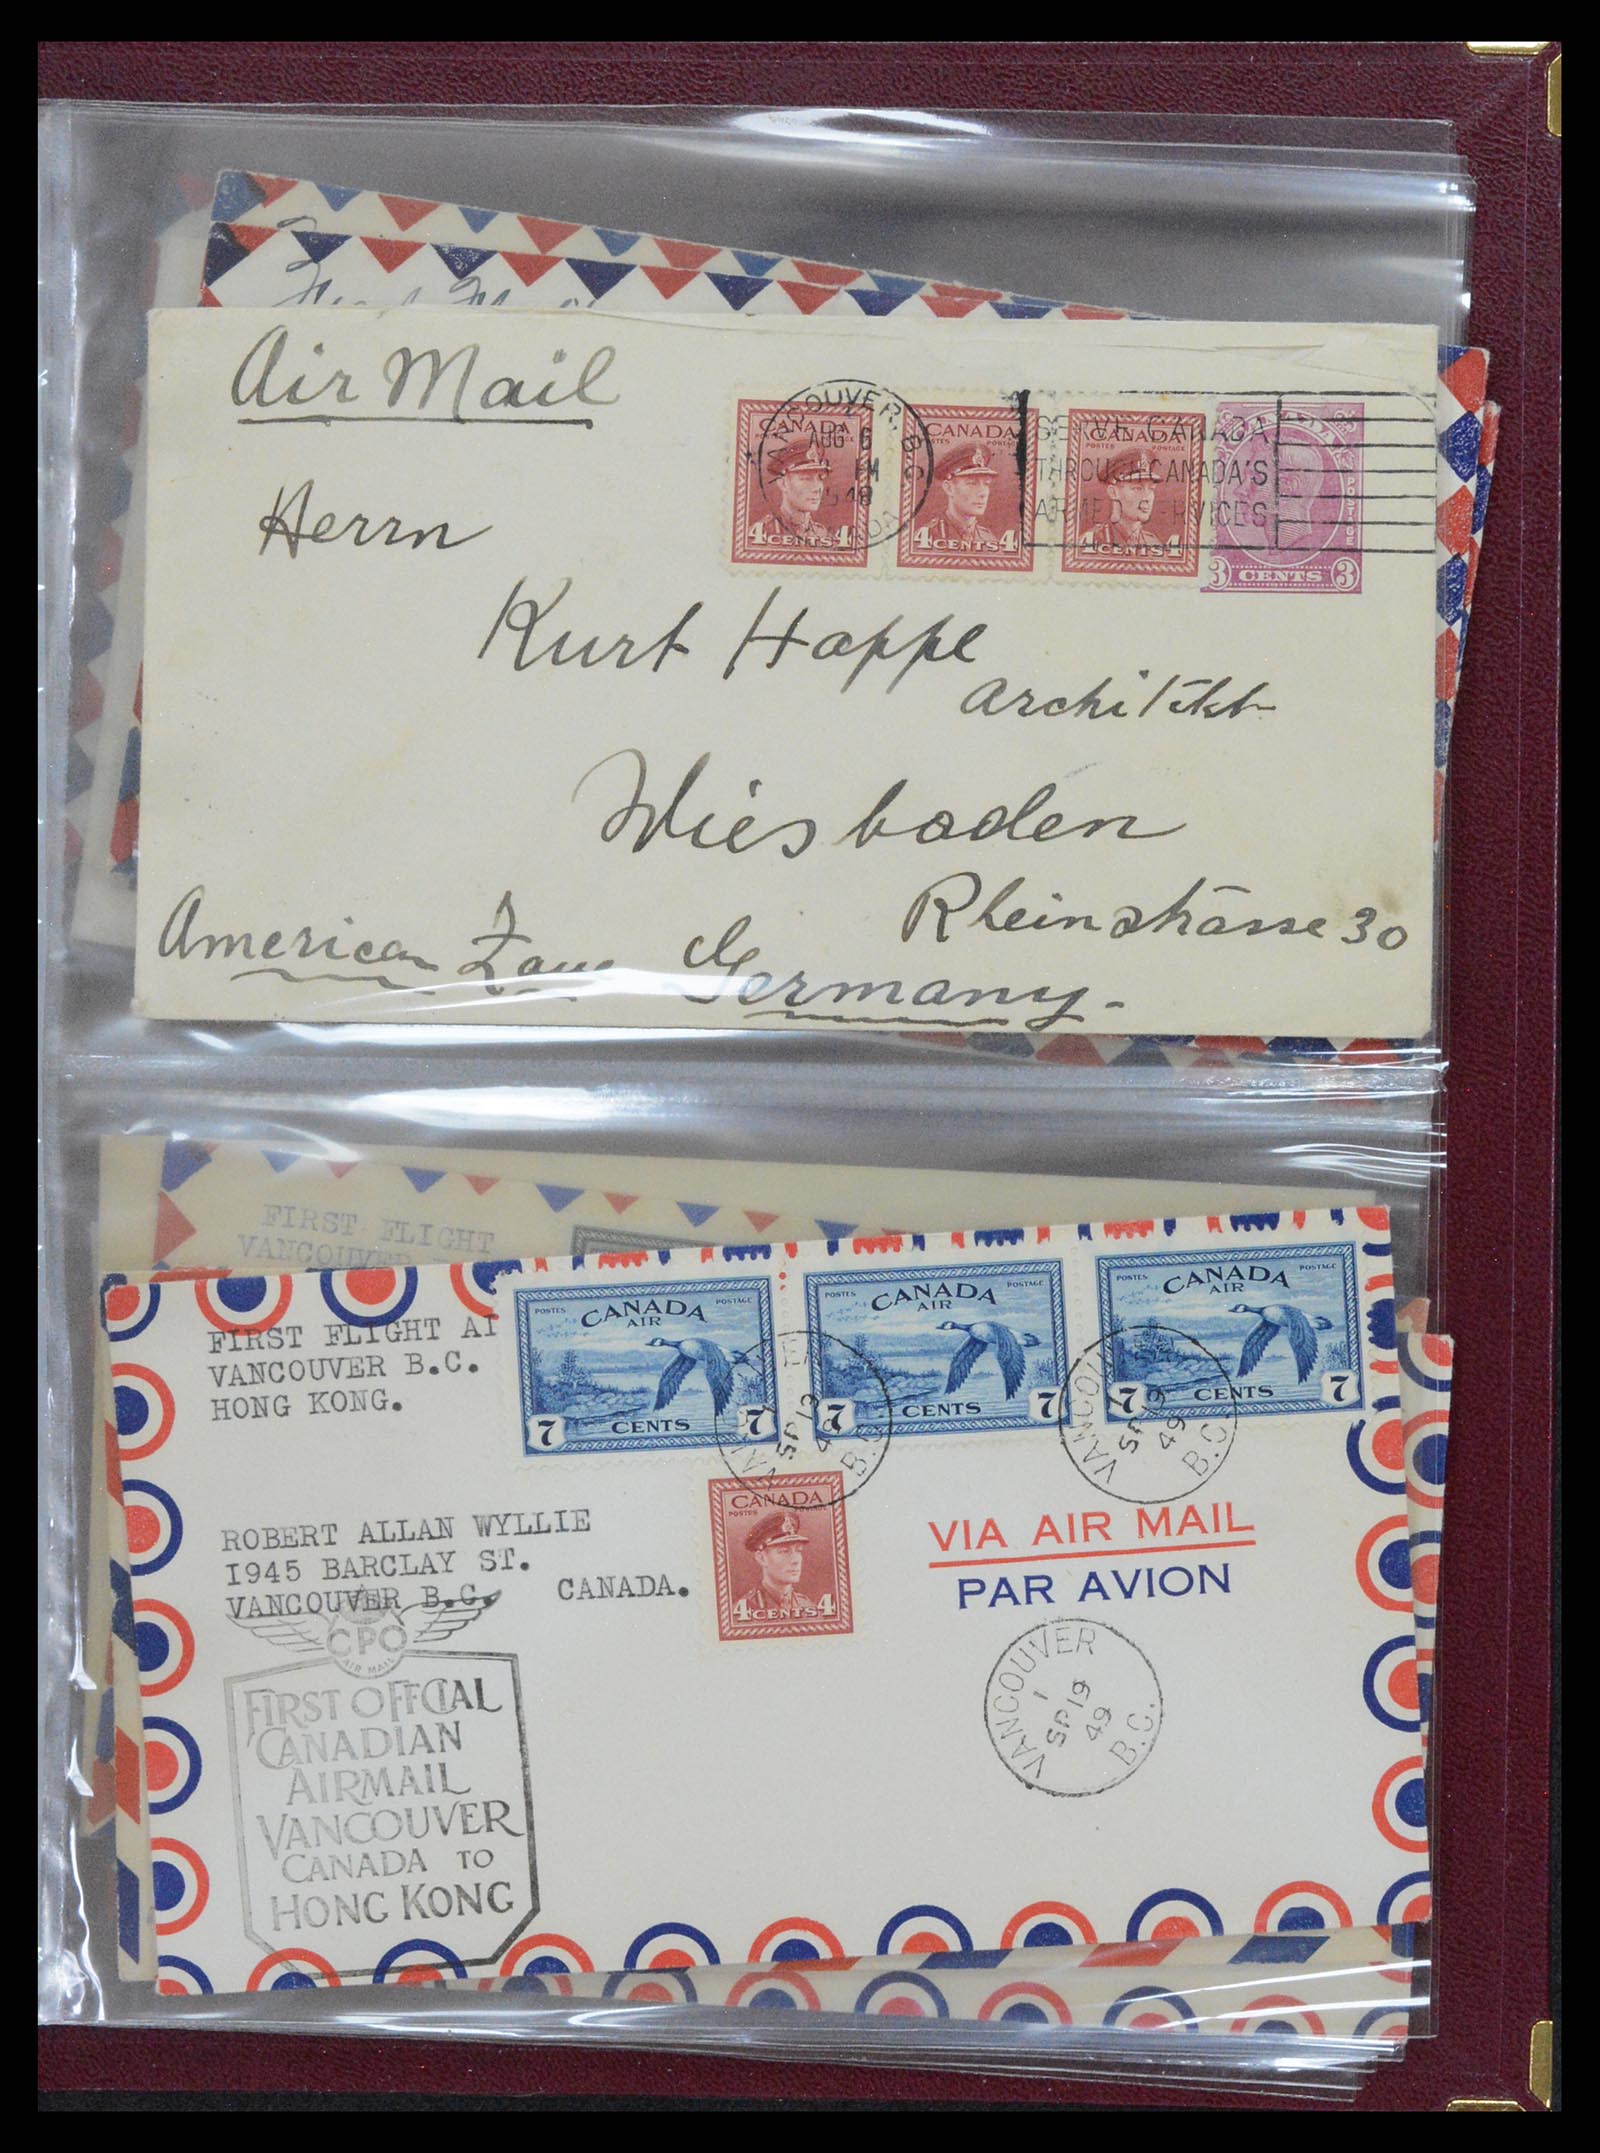 Air Mail
VANCOUVER, B.C.
AUG 6
PM
1948
CANADA
CANADA
POSTES POSTAGE
4 CENTS 4
CANADA
POSTES POSTAGE
4 CENTS 4
CANADA
POSTES POSTAGE
4 CENTS 4
SERVE CANADA
THROUGH CANADA'S
ARMED SERVICES
CANADA
POSTAGE
3 CENTS 3
Herrn
Kurt Hoppe
Architekt
Wiesbaden
Rheinstrasse 30
American Zone Germany.
FIRST FLIGHT
VANCOUVER
FIRST FLIGHT AI
VANCOUVER B.C.
HONG KONG.
POSTES POSTAGE
CANADA
AIR
7 CENTS 7
POSTES POSTAGE
CANADA
AIR
7 CENTS 7
POSTES POSTAGE
CANADA
AIR
7 CENTS 7
VANCOUVER
SP 19
49
B.C.
VANCOUVER
SP 19
49
B.C.
ROBERT ALLAN WYLLIE
1945 BARCLAY ST.
VANCOUVER B.C. CANADA.
CANADA
POSTES POSTAGE
4 CENTS 4
VIA AIR MAIL
PAR AVION
VANCOUVER
1
SP 19
49
B.C.
CPO
AIR MAIL
FIRST OFFICIAL
CANADIAN
AIRMAIL
VANCOUVER
CANADA TO
HONG KONG